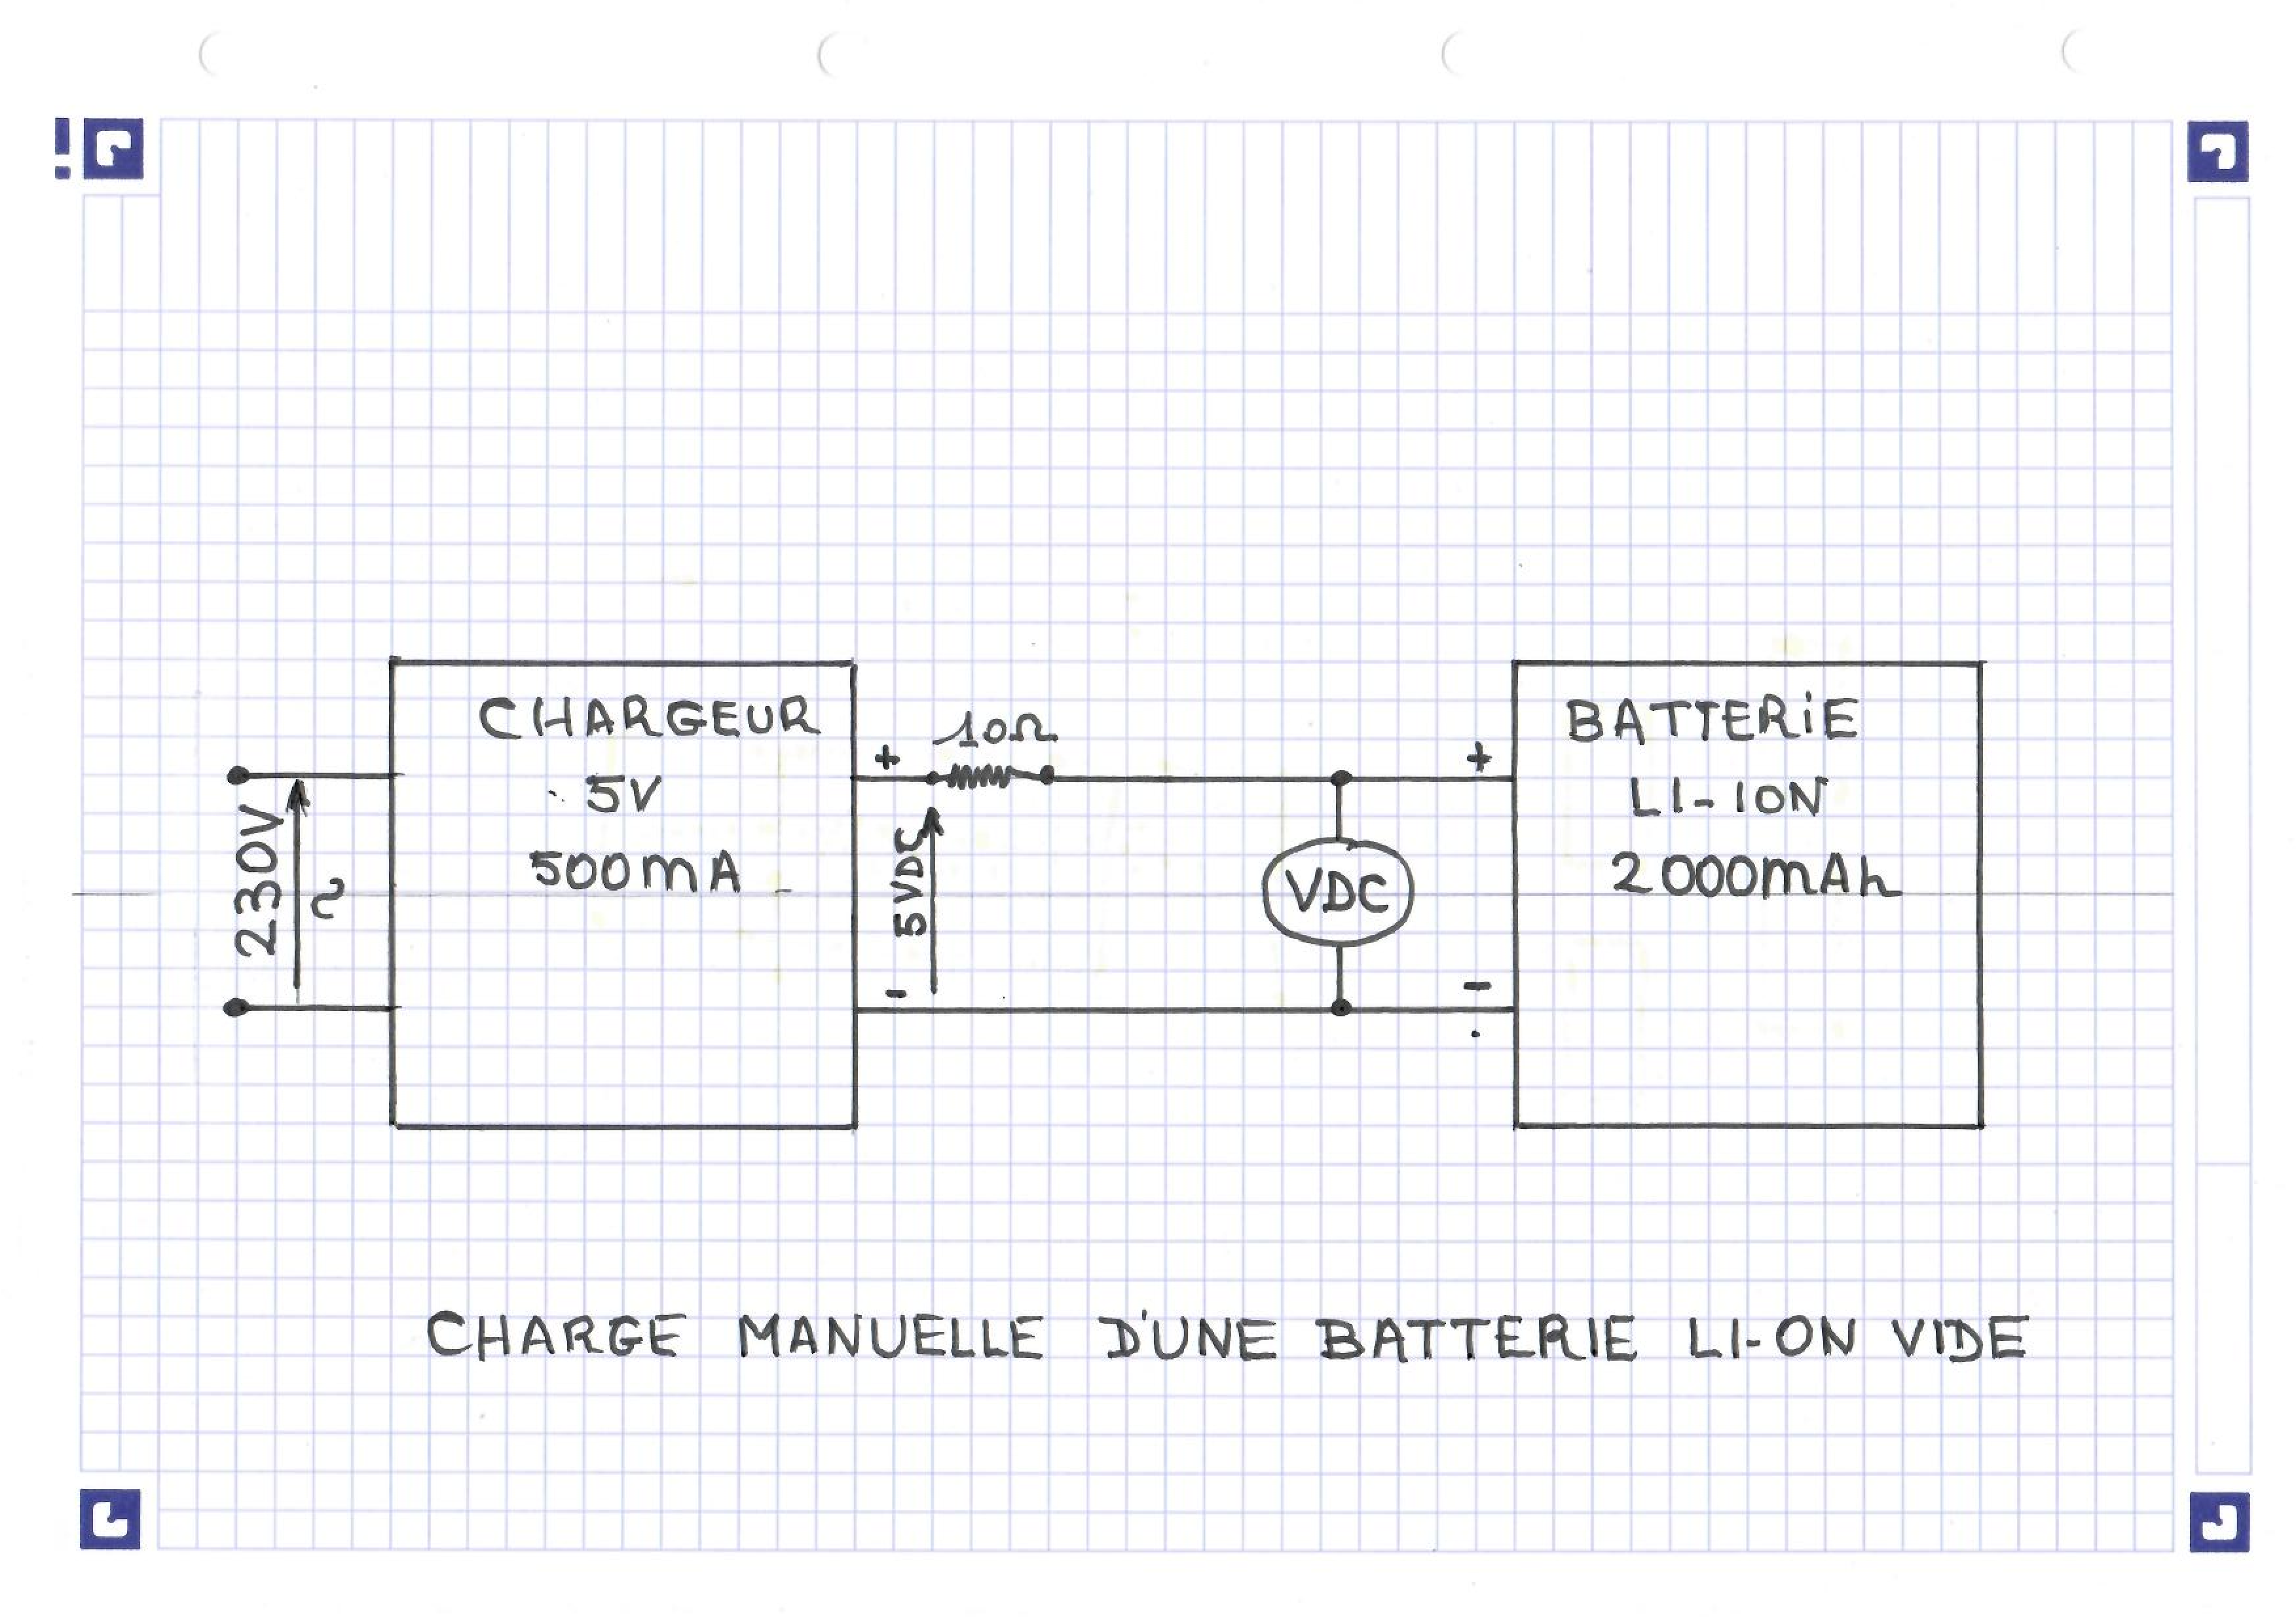 CHARGEUR
5V
500mA
230V
~
+
10Ω
5VDC
-
VDC
+
-
BATTERiE
LI-ION
2000mAh
CHARGE MANUELLE D'UNE BATTERIE LI-ON VIDE